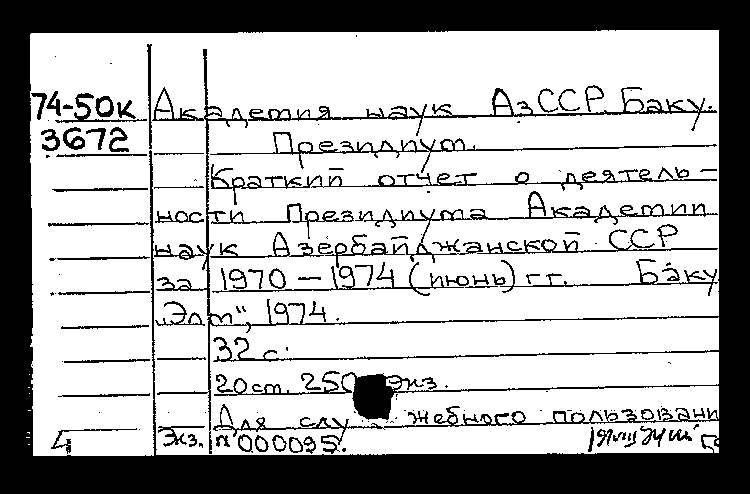 74-50к Академия наук АзССР. Баку.
3672 Президиум.
Краткий отчет о деятель-
ности Президиума Академии
наук Азербайджанской ССР
за 1970-1974 (июнь) гг. Баку
"Элм", 1974.
32 с.
20 ст. 250 экз.
Для служебного пользовани
Экз. n°000095.